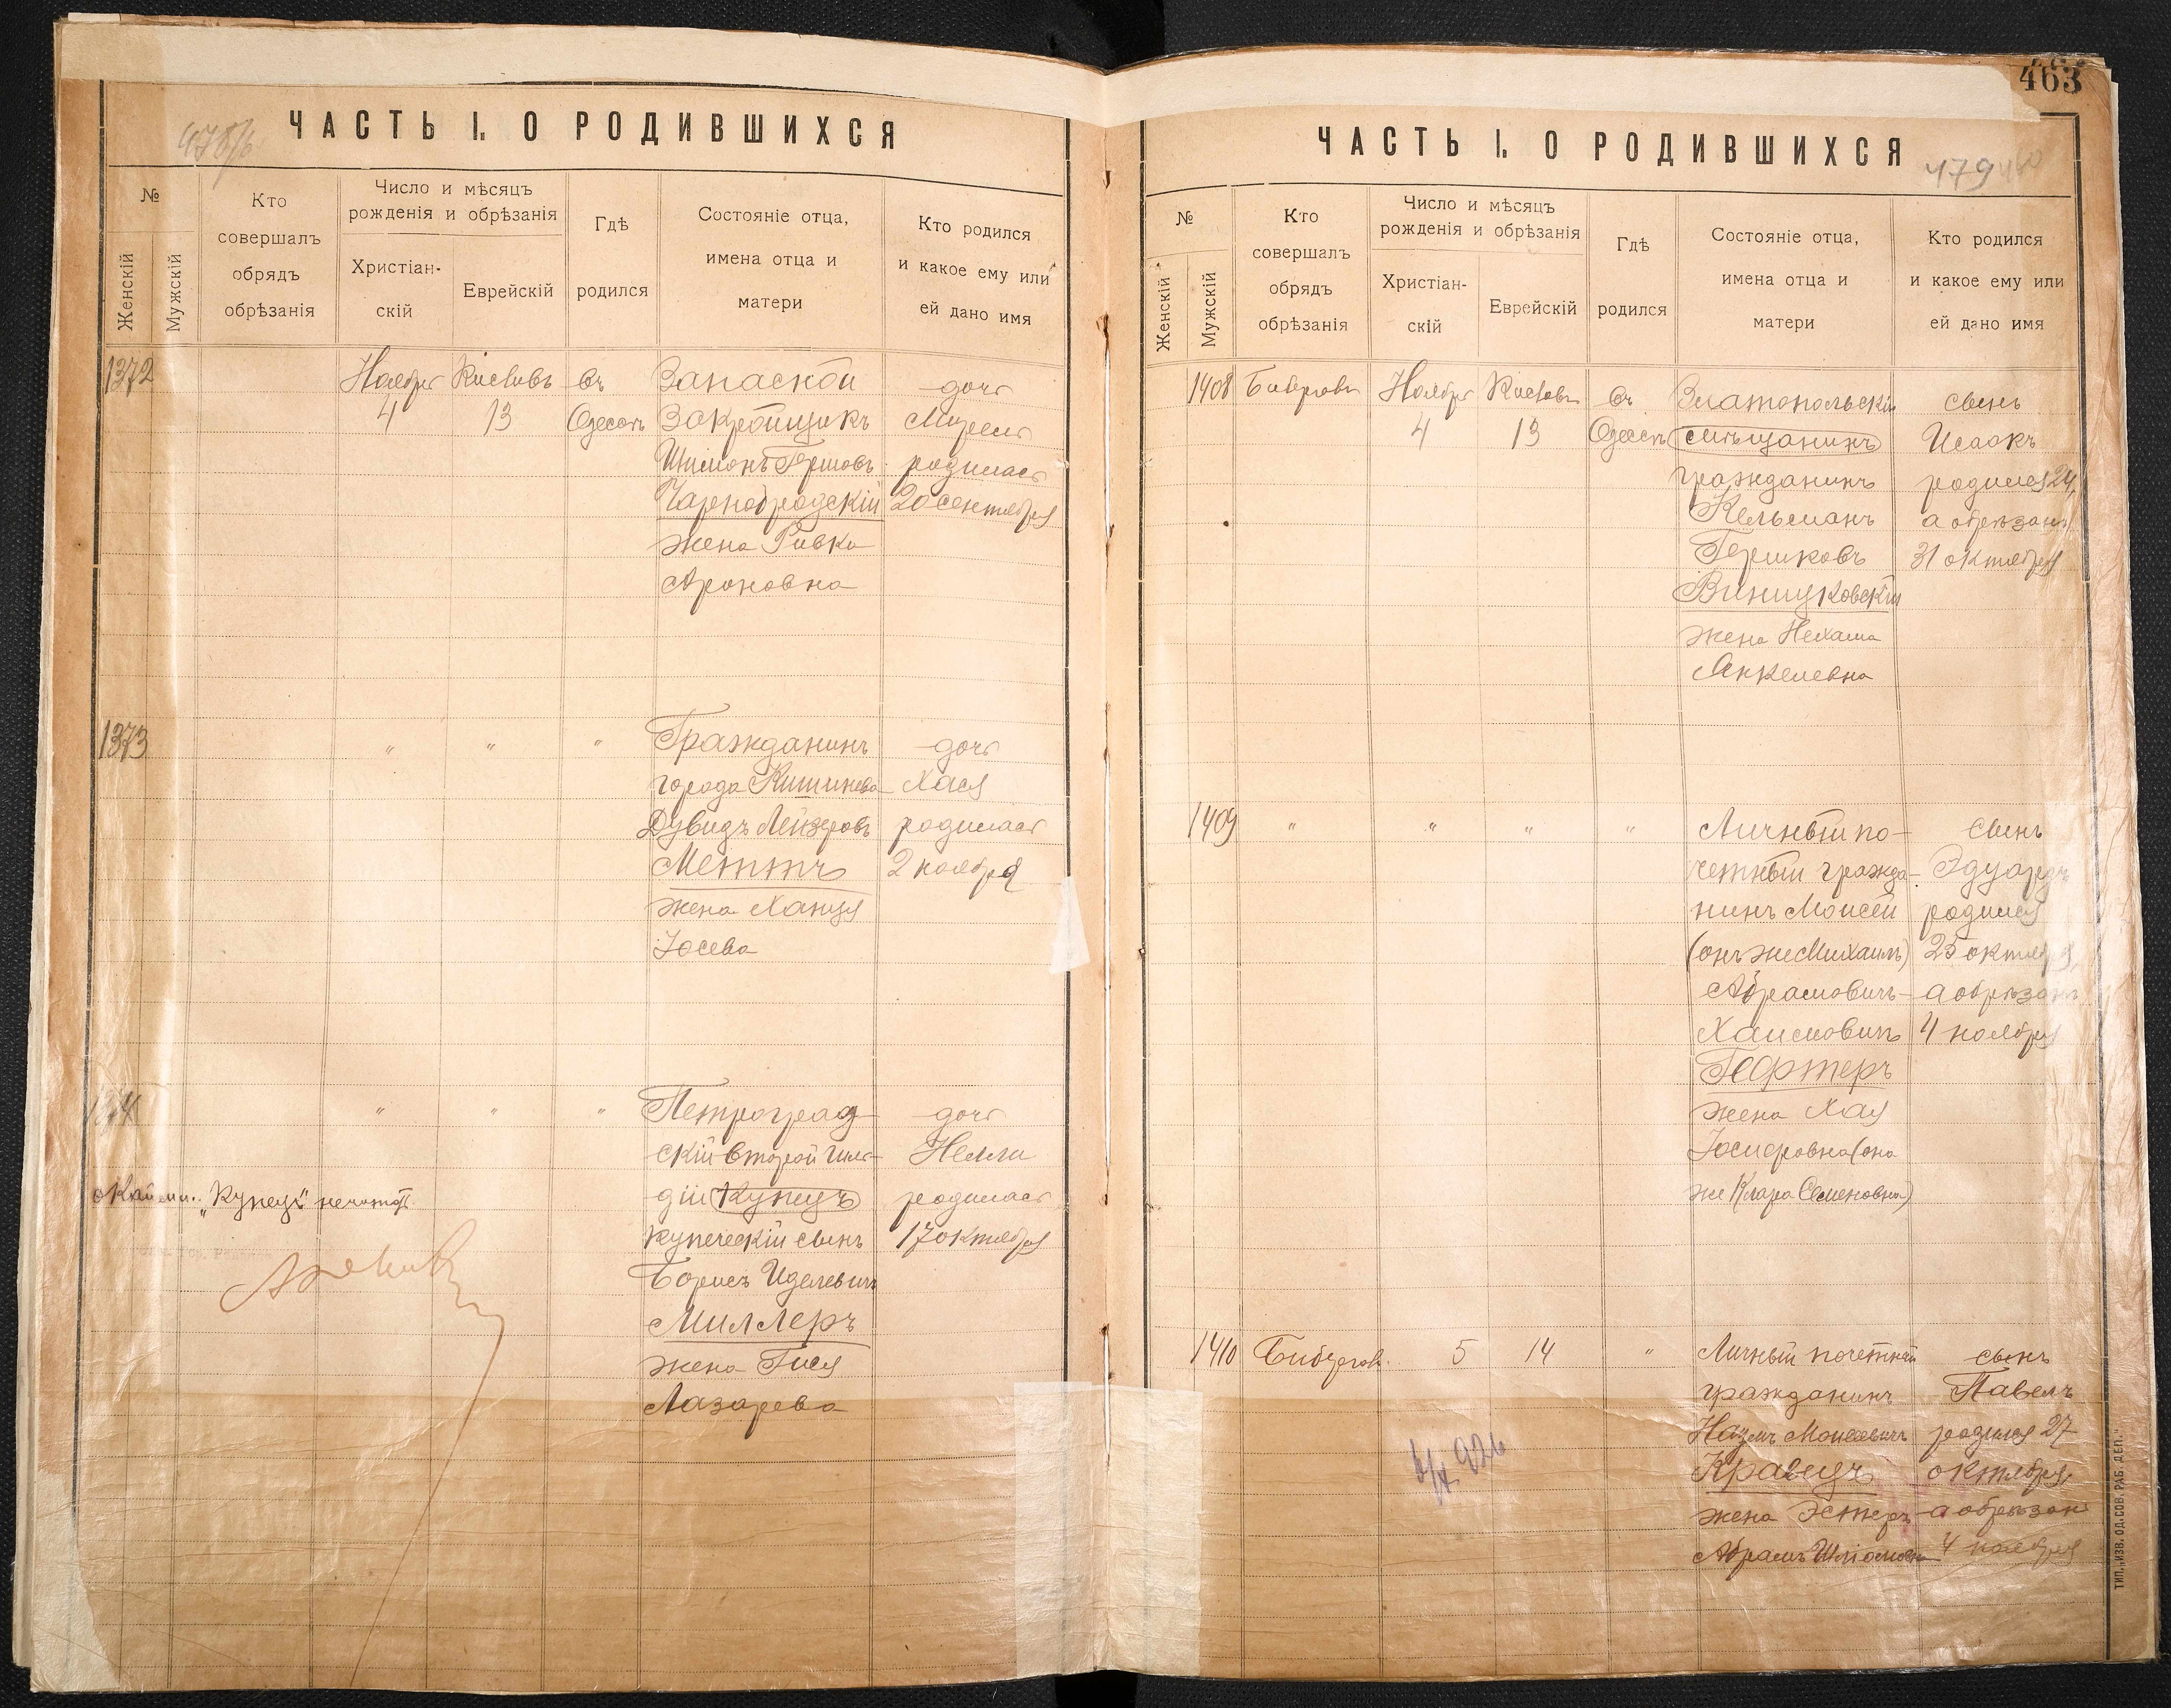 463
ЧАСТЬ I. О РОДИВШИХСЯ
№
Женскій
Мужскій
Кто
совершалъ
обрядъ
обрѣзанія
Число и мѣсяцъ
рожденія и обрѣзанія
Христіан-
скій
Еврейскій
Гдѣ
родился
Состояніе отца,
имена отца и
матери
Кто родился
и какое ему или
ей дано имя
1372
Ноября
4
Кислевъ
13
въ
Одессѣ
Запасной
Закройщикъ
Шимонъ Гершовъ
Чарнобродскій
жена Ривка
Ароновна
дочь
Мирель
родилась
20 сентября
1373
" " "
Гражданинъ
города Кишинева
Дувидъ Лейзеровъ
Меттъ
жена Ханця
Іосева
дочь
Хася
родилась
2 ноября
" " "
Петроград-
скій второй гиль-
діи Купецъ
купеческій сынъ
Борисъ Иделевичъ
Миллеръ
жена Гися
Лазарева
дочь
Нелли
родилась
17 октября
"Купецъ" нечитать
ЧАСТЬ I. О РОДИВШИХСЯ
479
№
Женскій
Мужскій
Кто
совершалъ
обрядъ
обрѣзанія
Число и мѣсяцъ
рожденія и обрѣзанія
Христіан-
скій
Еврейскій
Гдѣ
родился
Состояніе отца,
имена отца и
матери
Кто родился
и какое ему или
ей дано имя
1408
Ноября
4
Кислевъ
13
въ
Одессѣ
Златопольскій
мѣщанинъ
гражданинъ
Кельманъ
Гершковъ
Виницковскій
жена Нехама
Анкелевна
сынъ
Исаакъ
родился 24,
а обрѣзанъ
31 октября
1409
" " " "
Личный по-
четный гражда-
нинъ Моисей
(онъ же Михаилъ)
Абрамовичъ-
Хаимовичъ
Гефтеръ
жена Хая
Іосифовна (она
же Клара Семеновна)
сынъ
Эдуардъ
родился
25 октября,
а обрѣзанъ
4 ноября
1410
5
14
"
Личный почетный
гражданинъ
Моисеевичъ
Кравецъ
жена Эстеръ
Абрамъ Шліомовна
сынъ
Павелъ
родился 27
октября
а обрѣзанъ
4 ноября
ТИП. „ИЗВ. ОД. СОВ. РАБ. ДЕП."